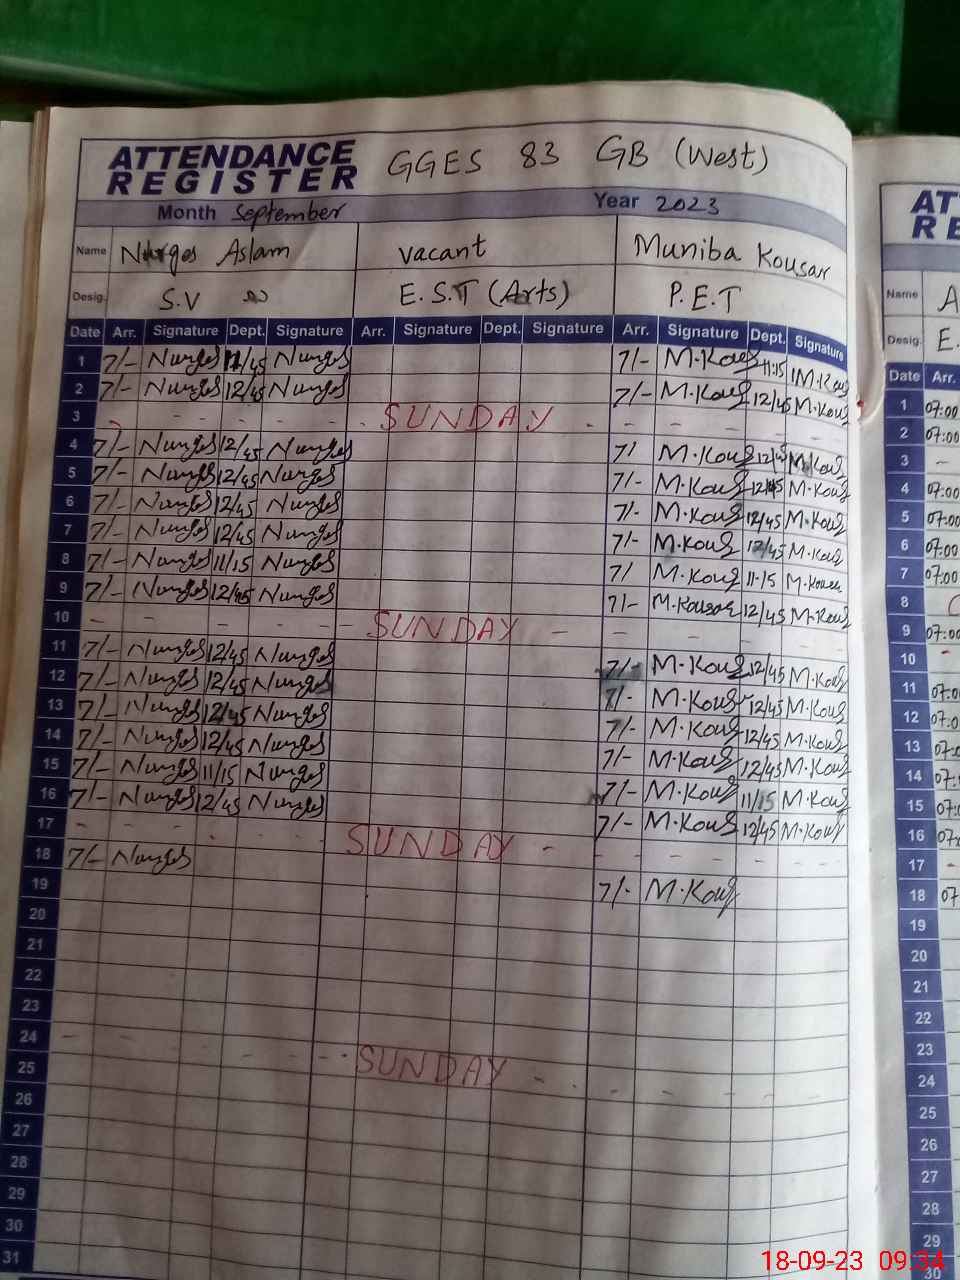 ATTENDANCE REGISTER GGES 83 GB (West)
Month September Year 2023
Name Aslam vacant Muniba Kousar
Desig. S.V E.S.T (Arts) P.E.T
Date Arr. Signature Dept. Signature Arr. Signature Dept. Signature Arr. Signature Dept. Signature
1 7/- Narges 11/45 Narges 7/- M.Kous 11:15 M.Kous
2 7/- Narges 12/45 Narges 7/- M.Kous 12/45 M.Kous
3 SUNDAY
4 7/- Narges 12/45 Narges 7/ M.Kous 12/45 M.Kous
5 7/- Narges 12/45 Narges 7/- M.Kous 12/45 M.Kous
6 7/- Narges 12/45 Narges 7/- M.Kous 12/45 M.Kous
7 7/- Narges 12/45 Narges 7/- M.Kous 12/45 M.Kous
8 7/- Narges 11/15 Narges 7/ M.Kous 11.15 M.Kous
9 7/- Narges 12/45 Narges 7/- M.Kousar 12/45 M.Kous
10 SUNDAY
11 7/- Narges 12/45 Narges 7/- M.Kous 12/45 M.Kous
12 7/- Narges 12/45 Narges 7/- M.Kous 12/45 M.Kous
13 7/- Narges 12/45 Narges 7/- M.Kous 12/45 M.Kous
14 7/- Narges 12/45 Narges 7/- M.Kous 12/45 M.Kous
15 7/- Narges 11/15 Narges 7/- M.Kous 11/15 M.Kous
16 7/- Narges 12/45 Narges 7/- M.Kous 12/45 M.Kous
17 SUNDAY
18 7/- Narges 7/- M.Kous
19
20
21
22
23
24 SUNDAY
25
26
27
28
29
30
31
AT
RE
Name A
Desig. E.
Date Arr.
1 07:00
2 07:00
3 -
4 07:00
5 07:00
6 07:00
7 07:00
8
9 07:00
10
11 07:0
12 07:0
13 07:
14 07:
15 07:
16 07:
17 -
18 07
19
20
21
22
23
24
25
26
27
28
29
30
18-09-23 09:34